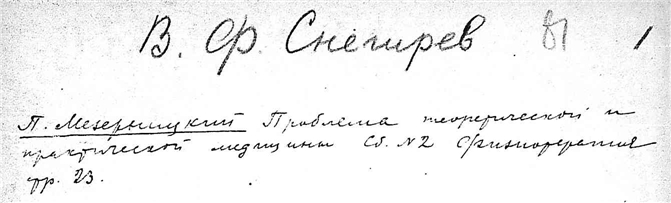 В. Ф. Снегирев 1
П. Мезерницкий Проблема теоретической и
практической медицины Сб. №2 Физиотерапия
тр. 23.